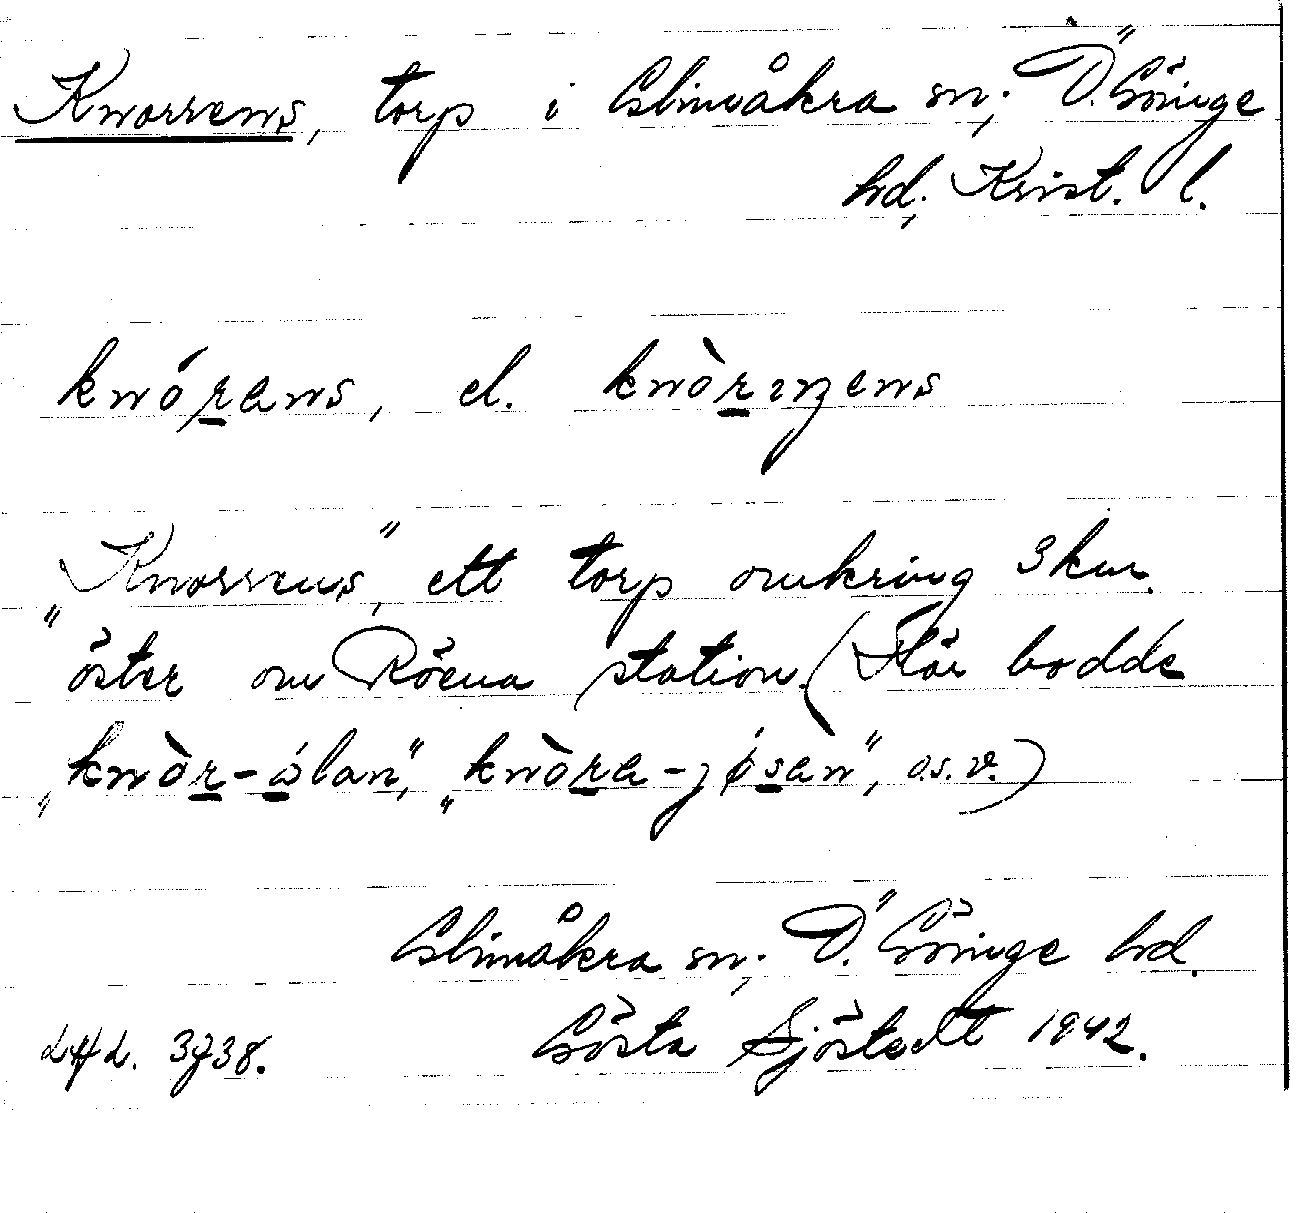 Knorrens, torp i Glimåkra sn; Ö. Göinge
hd; Krist. l.
knórans, el. knòrıŋens
"Knorrens", ett torp omkring 3 km.
öster om Röena station. (Här bodde
"knòr-ólan", "knòra-jǿsàn", o.s.v.)
Glimåkra sn; Ö. Göinge hd.
LAL. 3738. Gösta Sjöstedt 1942.